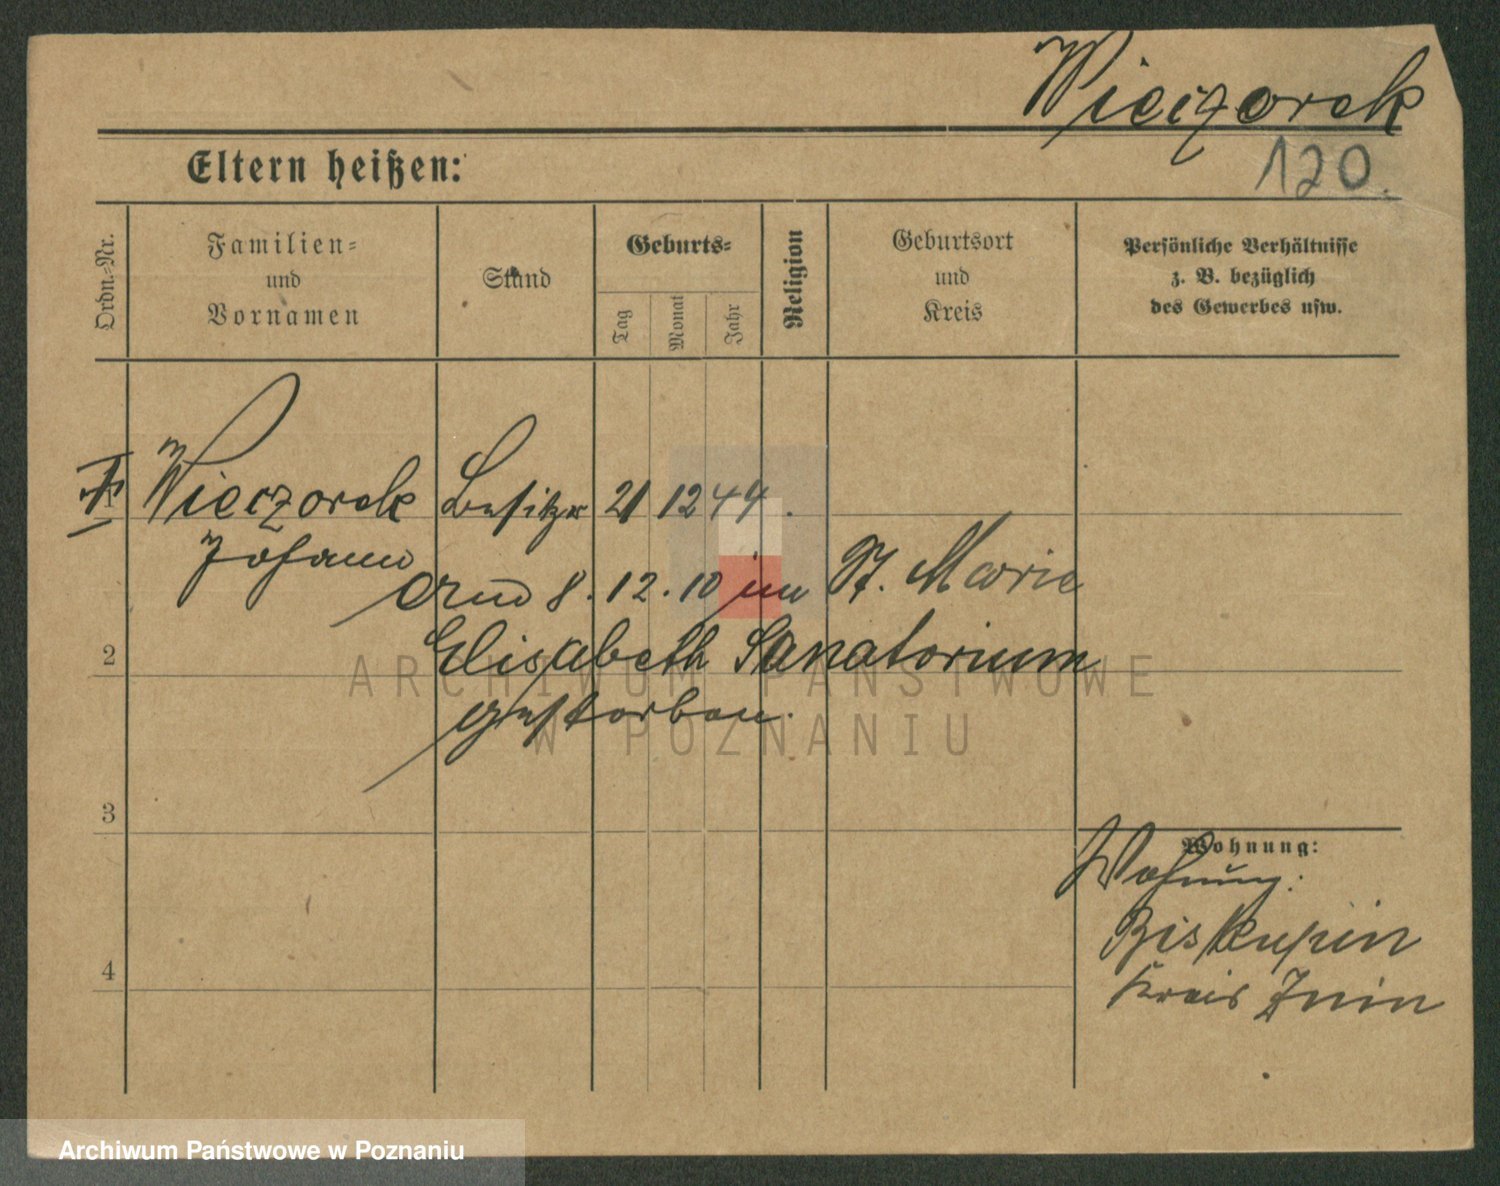 Wieczorek
120.
Eltern heißen:
Ordn.-Nr.
Familien-
und
Vornamen
Stand
Geburts-
Tag
Monat
Jahr
Religion
Geburtsort
und
Kreis
Persönliche Verhältnisse
z. B. bezüglich
des Gewerbes usw.
Wieczorek Besitzer 21 12 44.
Johann
am 8.12.10 im St. Marie
2 Elisabeth Sanatorium
gestorben.
3
Wohnung:
Wohnung:
Biskupin
4 Kreis Znin
ARCHIWUM PAŃSTWOWE
W POZNANIU
Archiwum Państwowe w Poznaniu